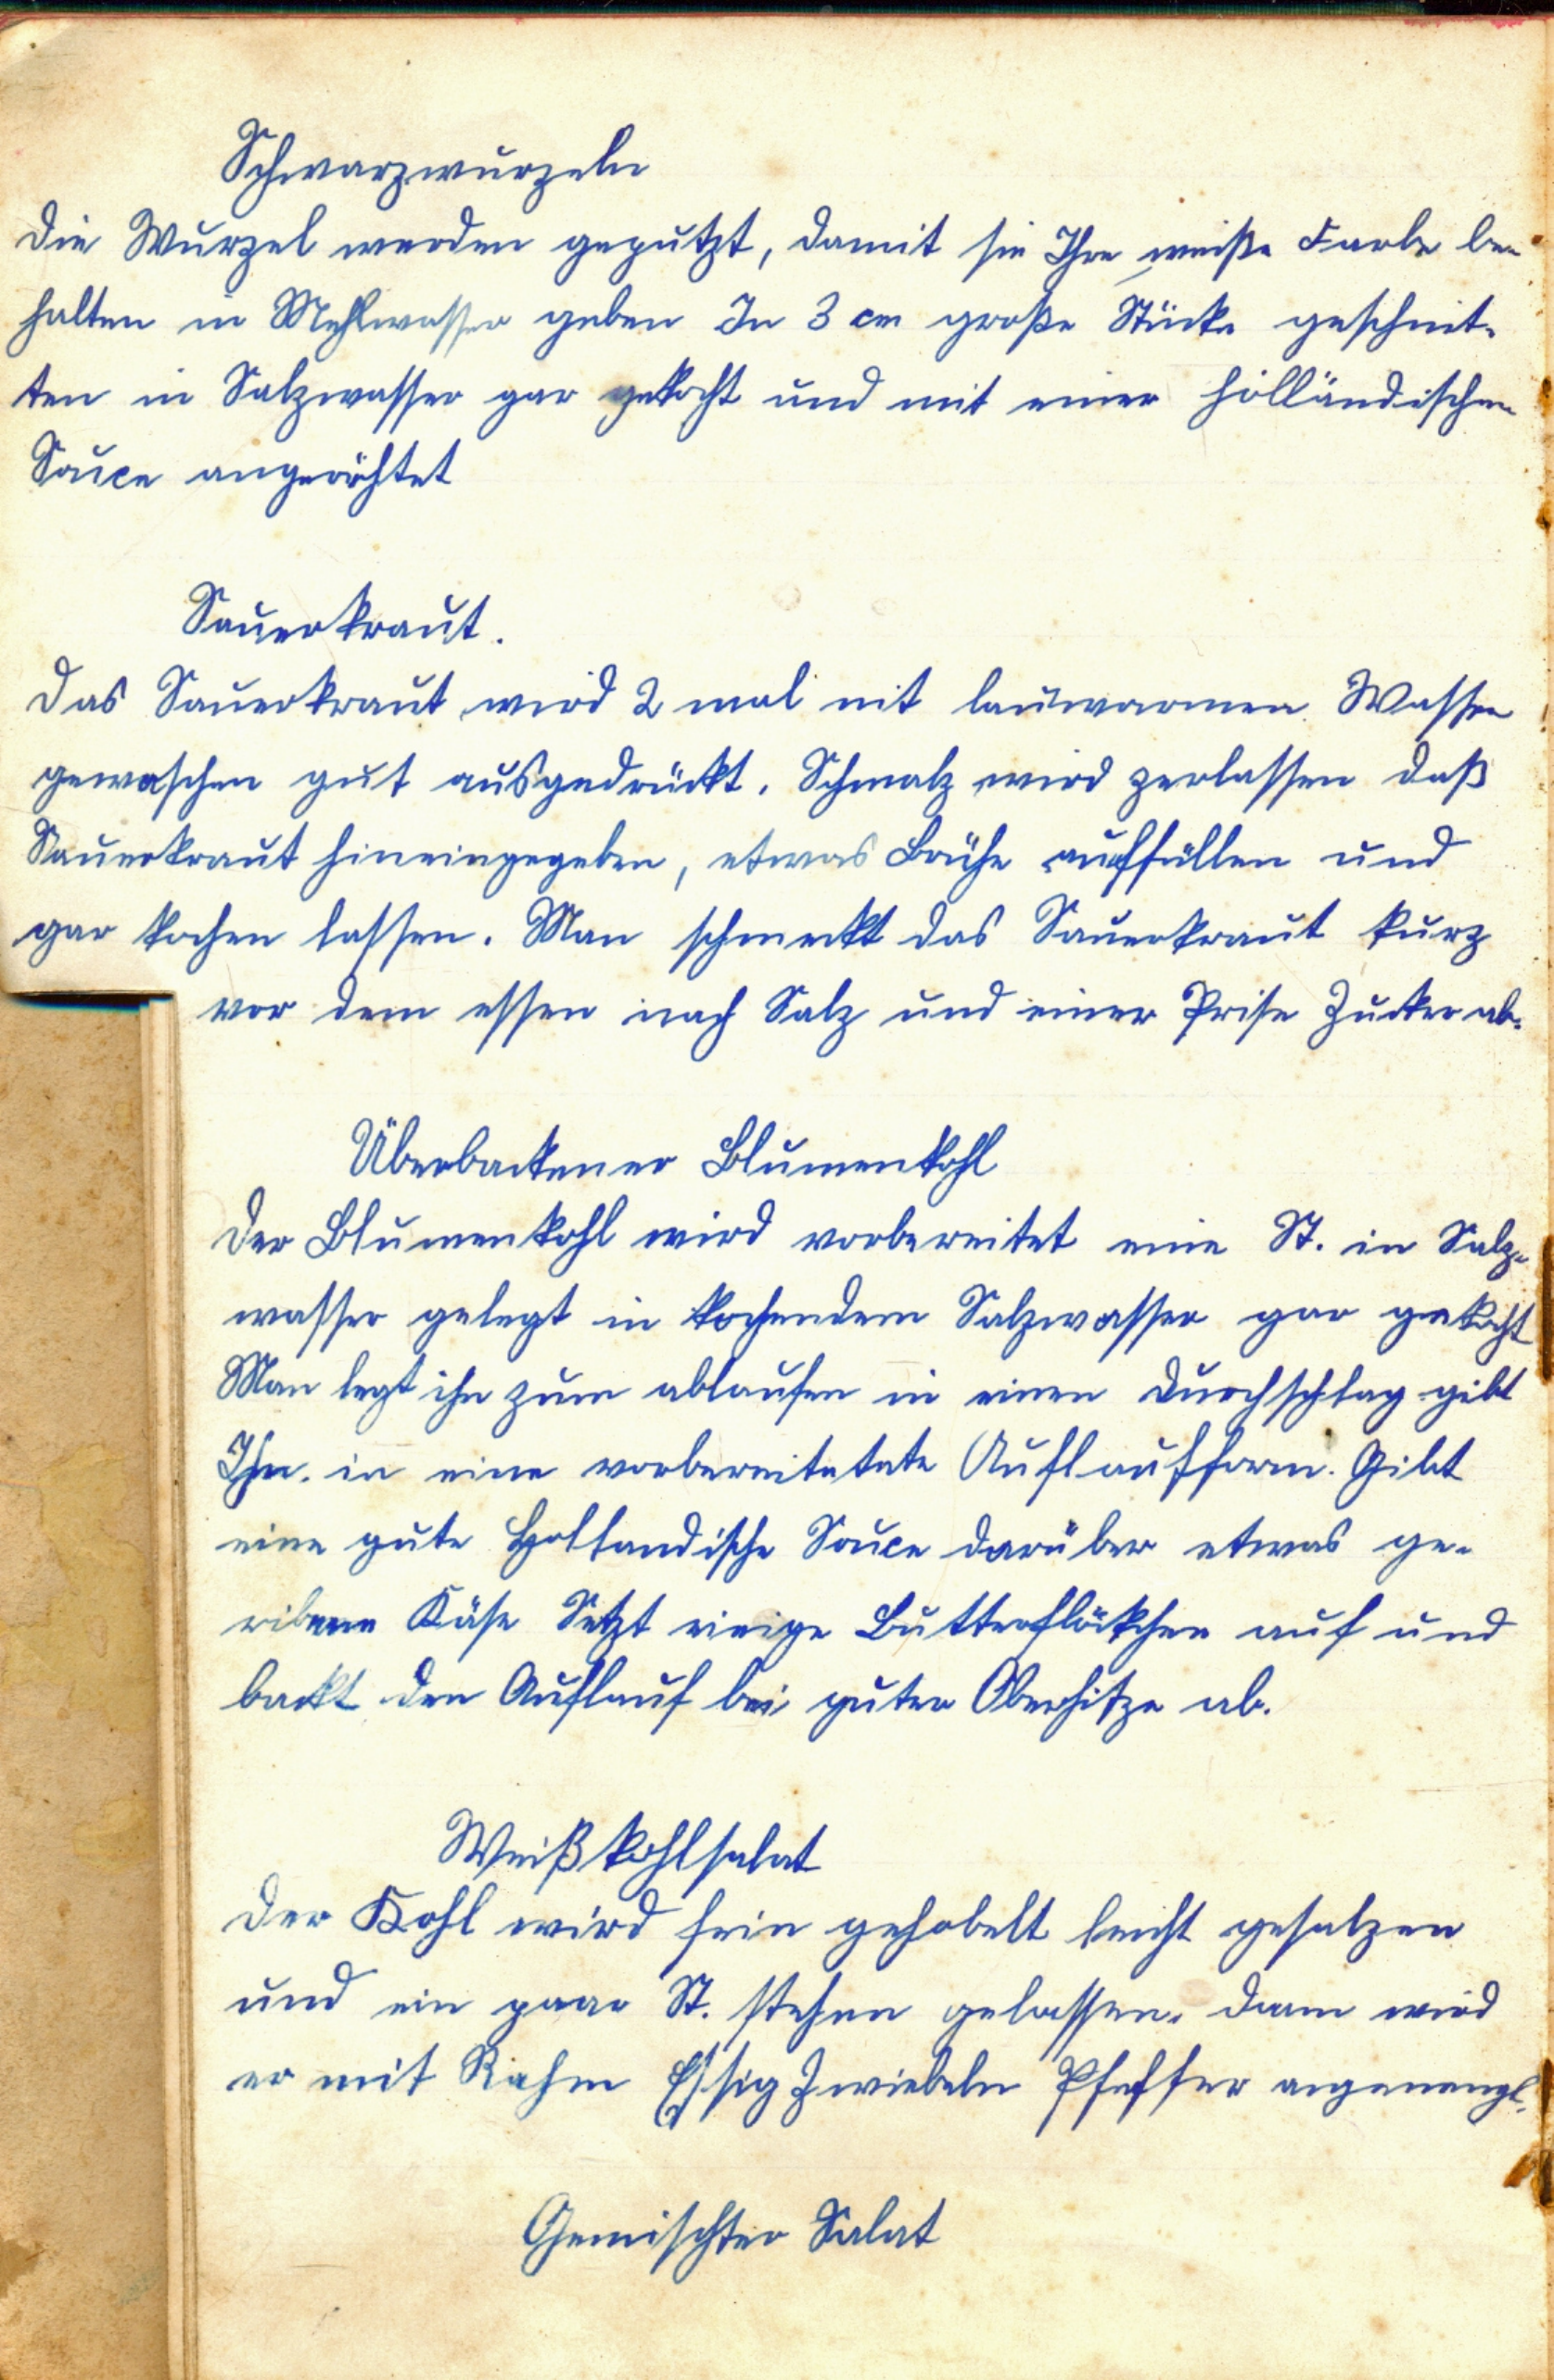 Schwarzwurzeln
Die Wurzel werden geputzt, damit sie Ihre weiße Farbe be-
halten in Mehlwasser geben In 3 cm große Stücke geschnit-
ten in Salzwasser gar gekocht und mit einer holländischen
Souce angerichtet
Sauerkraut.
Das Sauerkraut wird 2 mal mit lauwarmen Wasser
gewaschen gut ausgedrückt. Schmalz wird zerlassen daß
Sauerkraut hineingegeben, etwas Brühe auffüllen und
gar kochen lassen. Man schmeckt das Sauerkraut kurz
vor dem essen nach Salz und einer Prise Zucker ab.
Überbackener Blumenkohl
Der Blumenkohl wird vorbereitet eine St. in Salz-
wasser gelegt in kochendem Salzwasser gar gekocht
Man legt ihn zum ablaufen in einen Durchschlag gibt
Ihn. in eine vorbereitetete Auflaufform. Gibt
eine gute Hollandische Souce darüber etwas ge-
ribenen Käse Setzt einige Butterflökchen auf und
backt den Auflauf bei guter Oberhitze ab.
Weißkohlsalat
Der Kohl wird fein gehobelt leicht gesalzen
und ein paar St. stehen gelassen. Dann wird
er mit Rahm Essig Zwiebeln Pfeffer angemengt.
Gemischter Salat